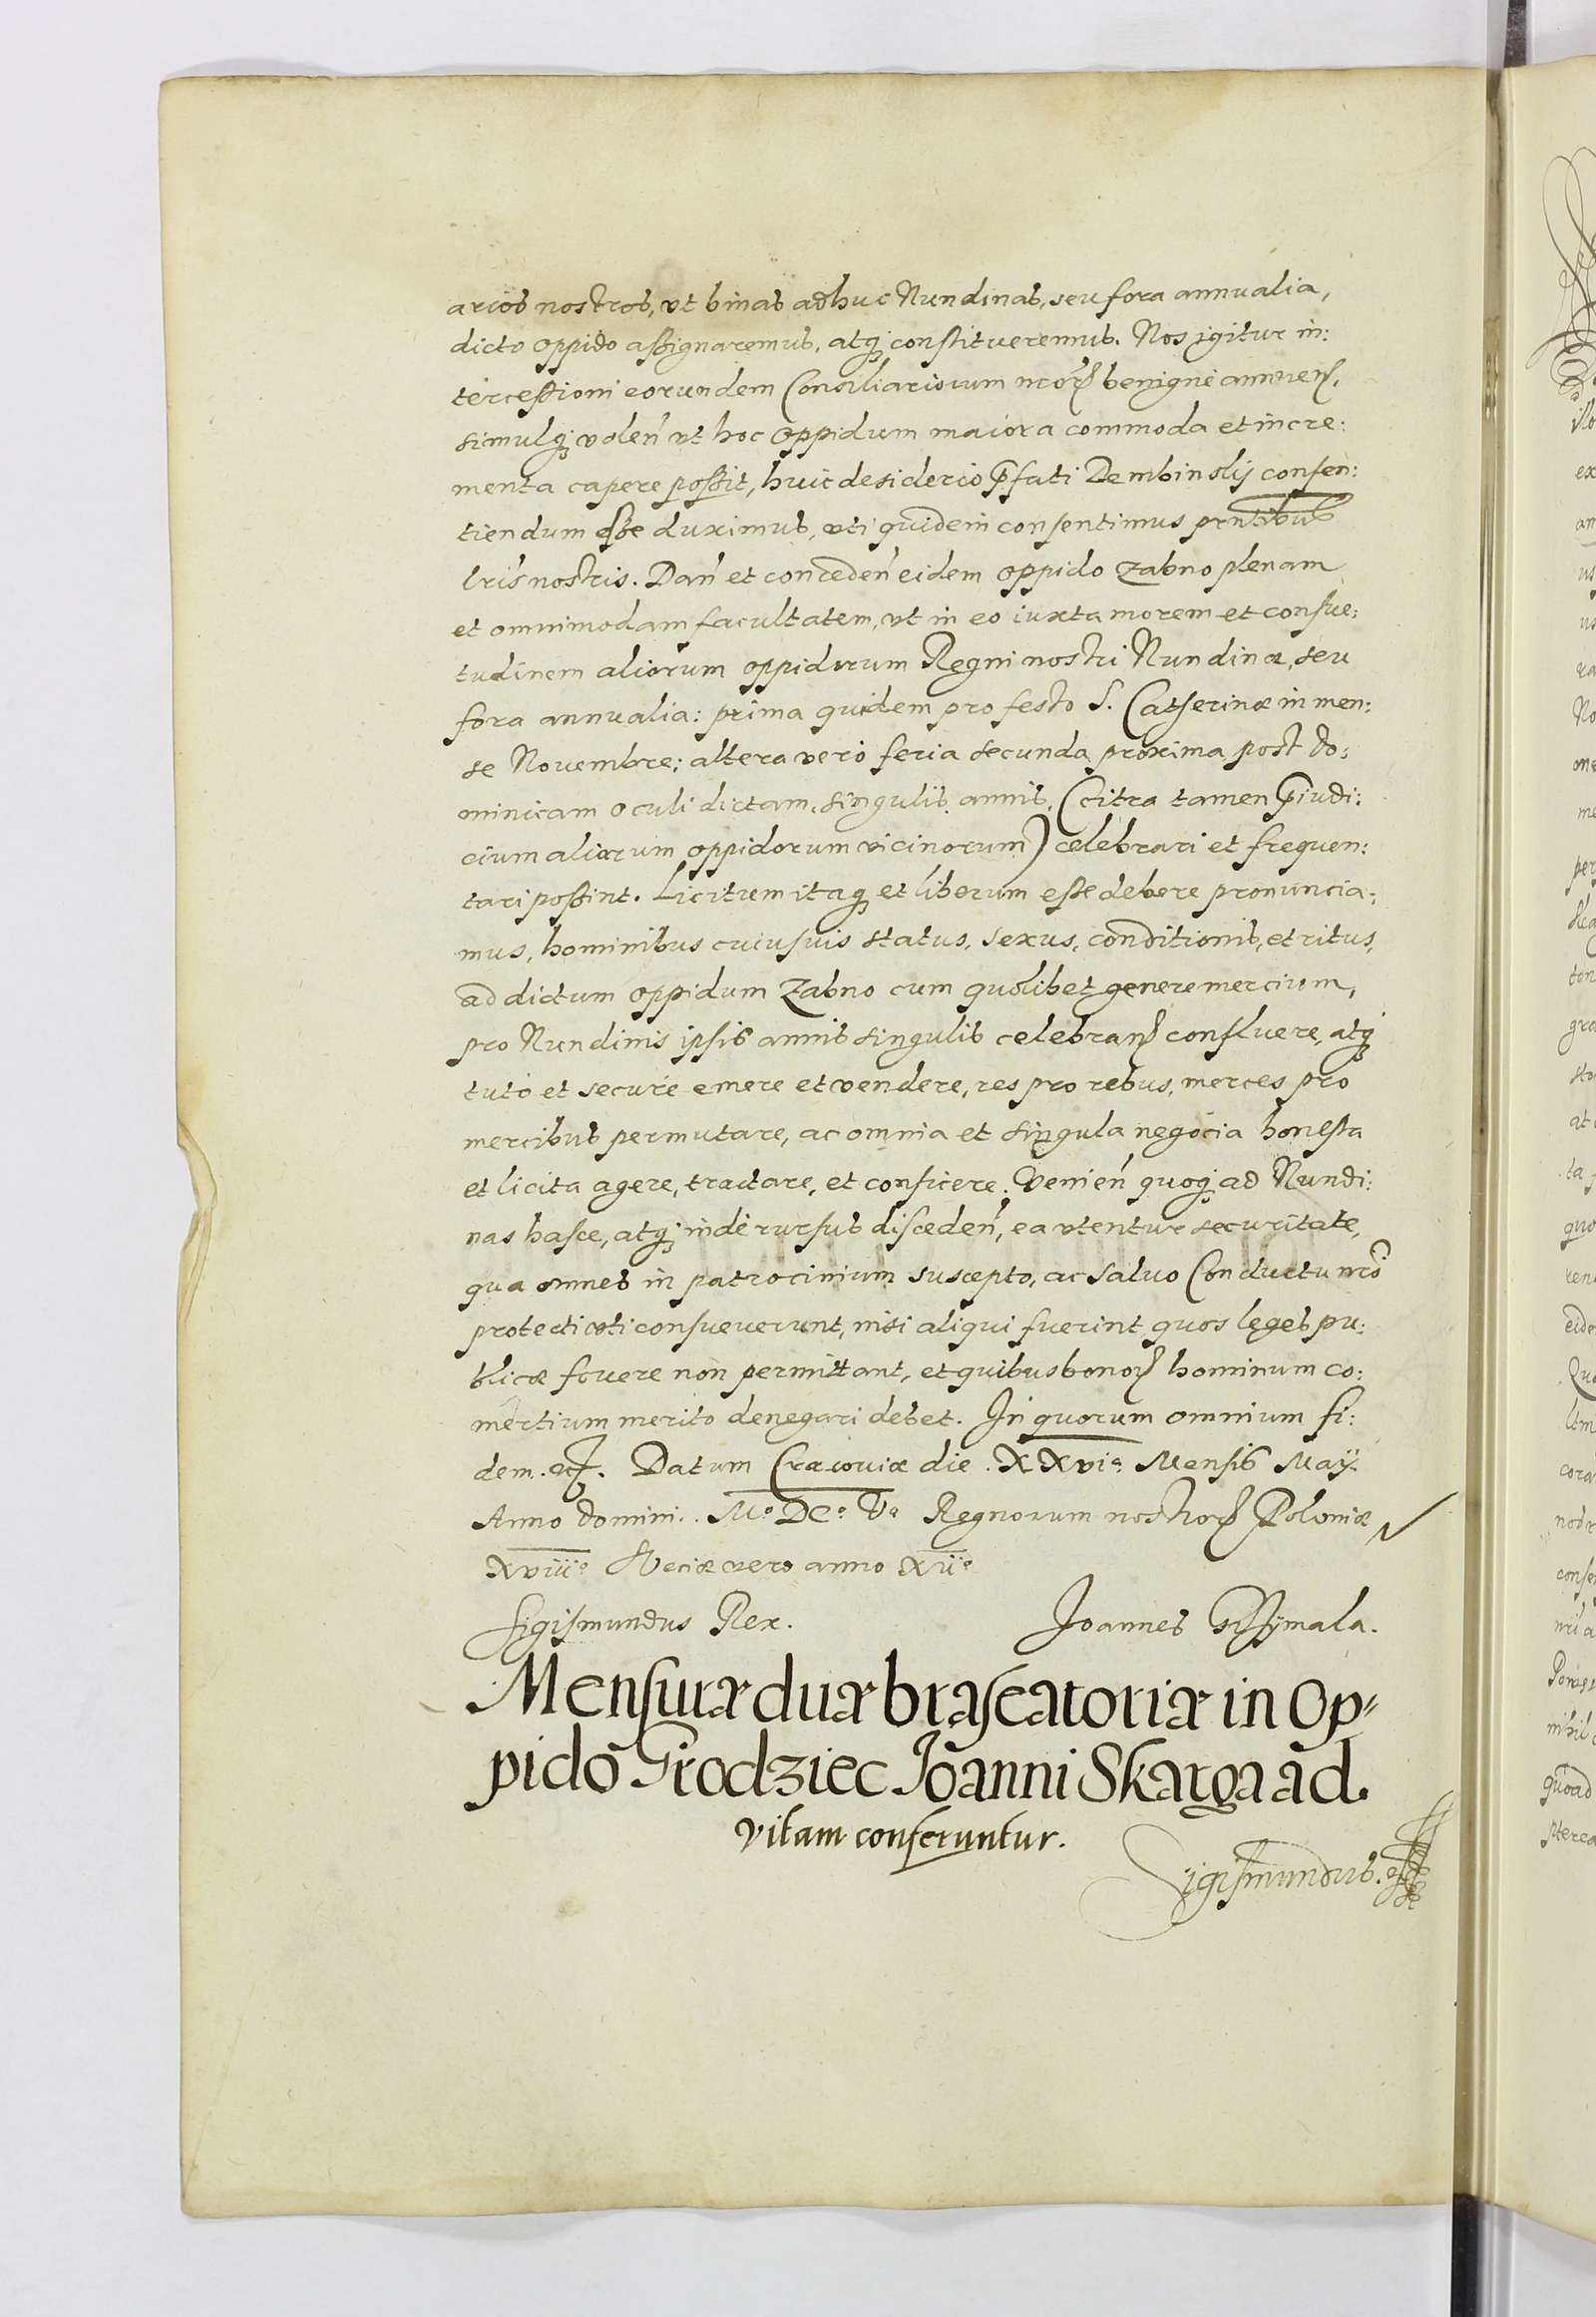 arios nostros, vt binas adhuc Nundinas, seu fora annualia,
dicto oppido assignaremus, atq; constitueremus. Nos igitur in:
tercessioni eorundem Consiliariorum nrorꝝ benignè annuen̄,
simulq; volen̄ vt hoc oppidum maiora commoda et incre:
menta capere possit, huic desiderio p̄fati Dembinslÿ consen:
tiendum esse duximus, vti quidem consentimus pn̄tibus
lris nostris. Dan̄ et conceden̄ eidem oppido Zabno plenam
et omnimodam facultatem, vt in eo iuxta morem et consue:
tudinem aliorum oppidorum Regni nostri Nundinæ, seu
fora annualia: prima quidem pro festo S. Catherinæ in men:
se Nouembre; altera verò feria secunda proxima post do:
ominicam oculi dictam, singulis annis, (citra tamen p̄iudi:
cium aliorum oppidorum vicinorum) celebrari et frequen:
tari possint. Licitum itaq; et liberum esse debere pronuncia:
mus, hominibus cuiusuis status, sexus, conditionis, et ritus,
ad dictum oppidum Zabno cum quolibet genere mercium,
pro Nundinis ipsis annis singulis celebran̄ confluere, atq;
tutò et securè emere et vendere, res pro rebus, merces pro
mercibus permutare, ac omnia et singula negocia honesta
et licita agere, tractare, et conficere. Venien̄ quoq; ad Nundi:
nas hasce, atq; indè rursus disceden̄, ea vtentur securitate,
qua omnes in patrocinium suscepto, ac saluo Conductu nrō
protecti vti consueuerunt, nisi aliqui fuerint quos leges pu:
blicæ fouere non permittant, et quibus bonorꝝ hominum co:
mertium merito denegari debet. In quorum omnium fi:
dem. etc. Datum Cracouiæ die. XXvi.ª Mensis Maÿ.
Anno domini. M.º DC.º Vº Regnorum nostrorꝝ Poloniæ
Xviii.º Sueciæ vero anno Xii.º
Sigismundus Rex. Joannes Grzymala.
Mensuræ duæ braseatoriæ in Op=
pido Grodziec Joanni Skarga ad.
vitam conferuntur.
Sigismundus. etc